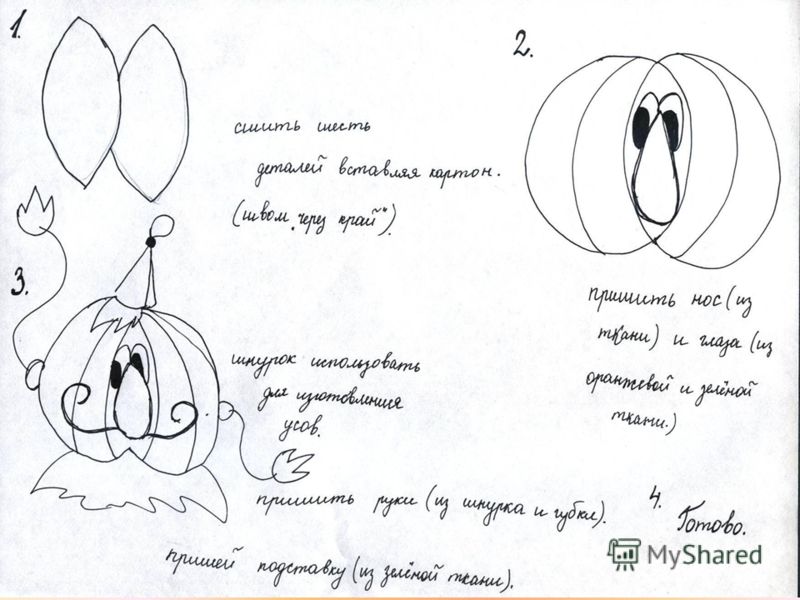 1.
сшить шесть
деталей вставляя картон.
(швом „через край").
2.
пришить нос (из
ткани) и глаза (из
оранжевой и зелёной
ткани.)
3.
шнурок использовать
для изготовления
усов.
пришить руки (из шнурка и губки).
пришей подставку (из зелёной ткани).
4.
Готово.
MyShared